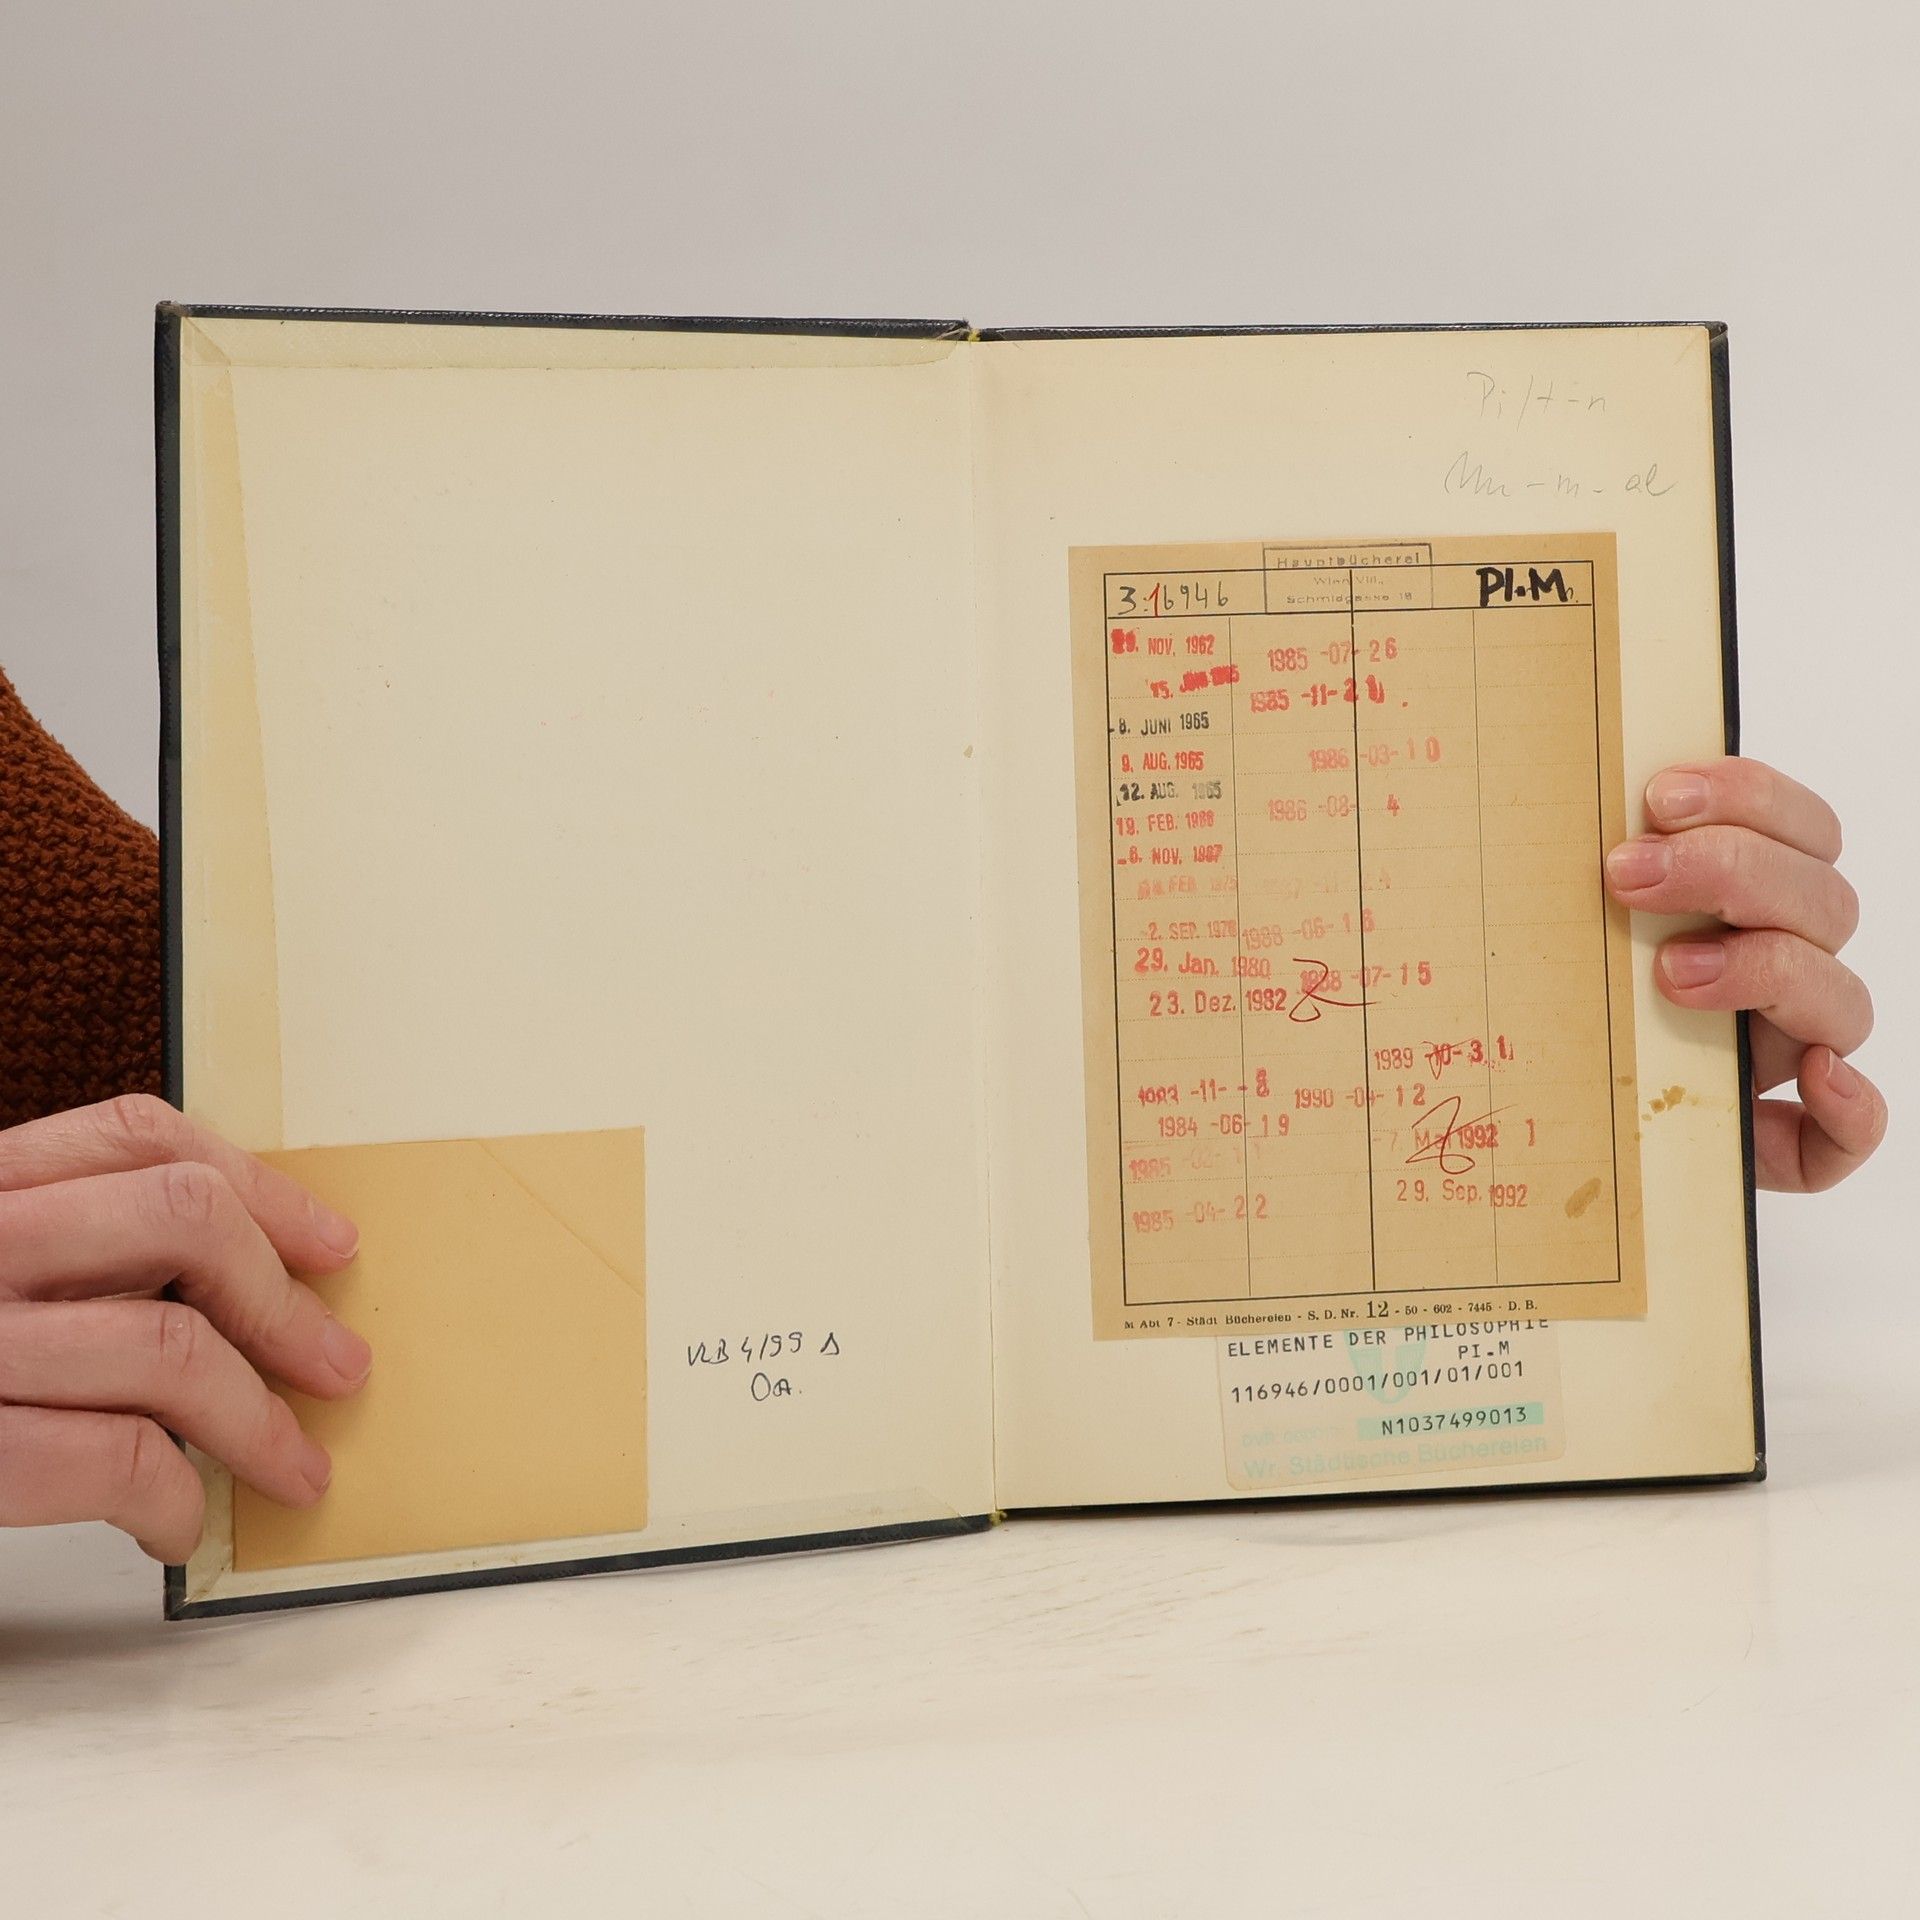 Pi/t-n
Hauptbücherei
Wien VIII.,
Schmidgasse 18
3.16946
PI.M.
NOV. 1962
15.
8. JUNI 1965
9. AUG. 1965
12. AUG. 1965
19. FEB.
6. NOV. 1967
FEB. 1975
2. SEP.
29. Jan. 1980
23. Dez. 1982
-11- - 8
1984 -06- 19
1985
1985 -04- 22
1985 -07- 26
1985 -11- 21
1986 -03- 10
1986 -08- 4
1988 -06- 16
1988 -07- 15
1989 -10- 31
1990 -04- 12
7. Mai 1992
29. Sep. 1992
M Abt 7 - Städt Büchereien - S. D. Nr. 12 - 50 - 602 - 7445 - D. B.
ELEMENTE DER PHILOSOPHIE
PI.M
116946/0001/001/01/001
N1037499013
Wr. Städtische Büchereien
4/99